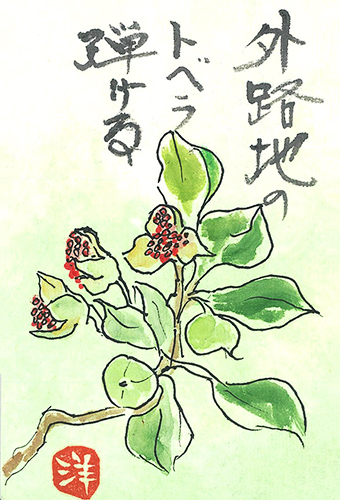 外路地の
トベラ
弾ける
洋